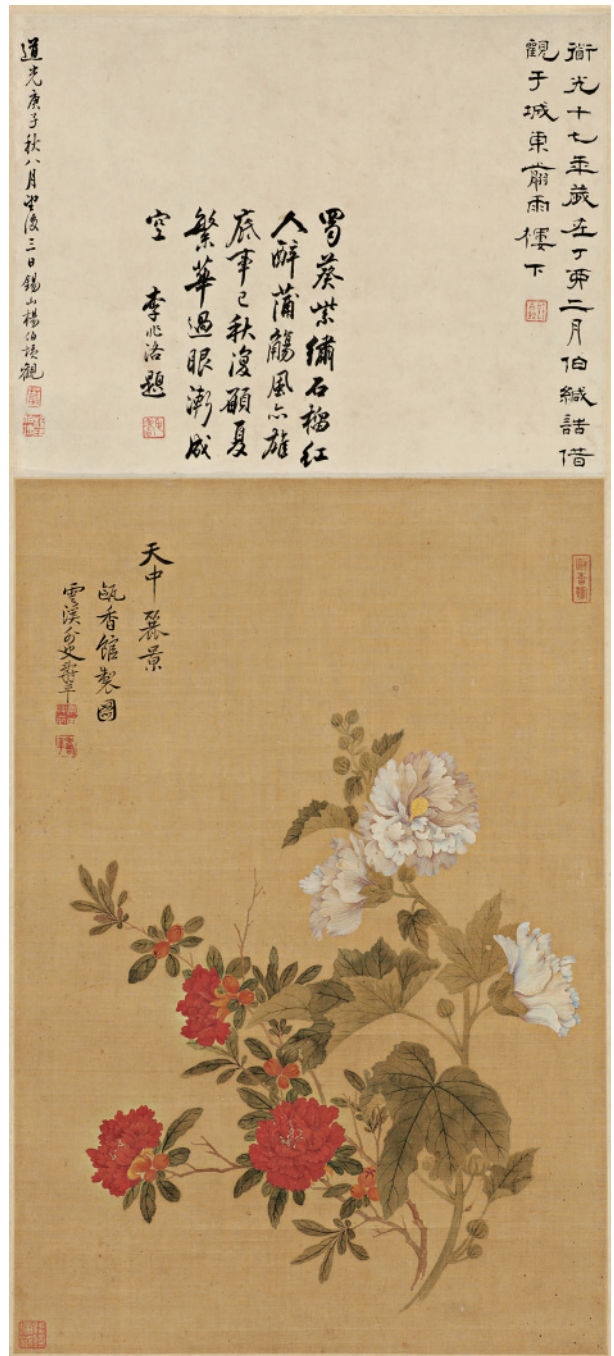 衜光十七年歲在丁丣二月伯緘借
觀于城東雨樓下
蜀葵紫繡石榴紅
人醉蒲觴風亦雄
底事已秋復顧夏
繁華過眼漸成
空 李兆洛題
道光庚子秋八月望後三日錫山楊伯觀
天中麗景
甌香館製圖
雲溪外史壽平